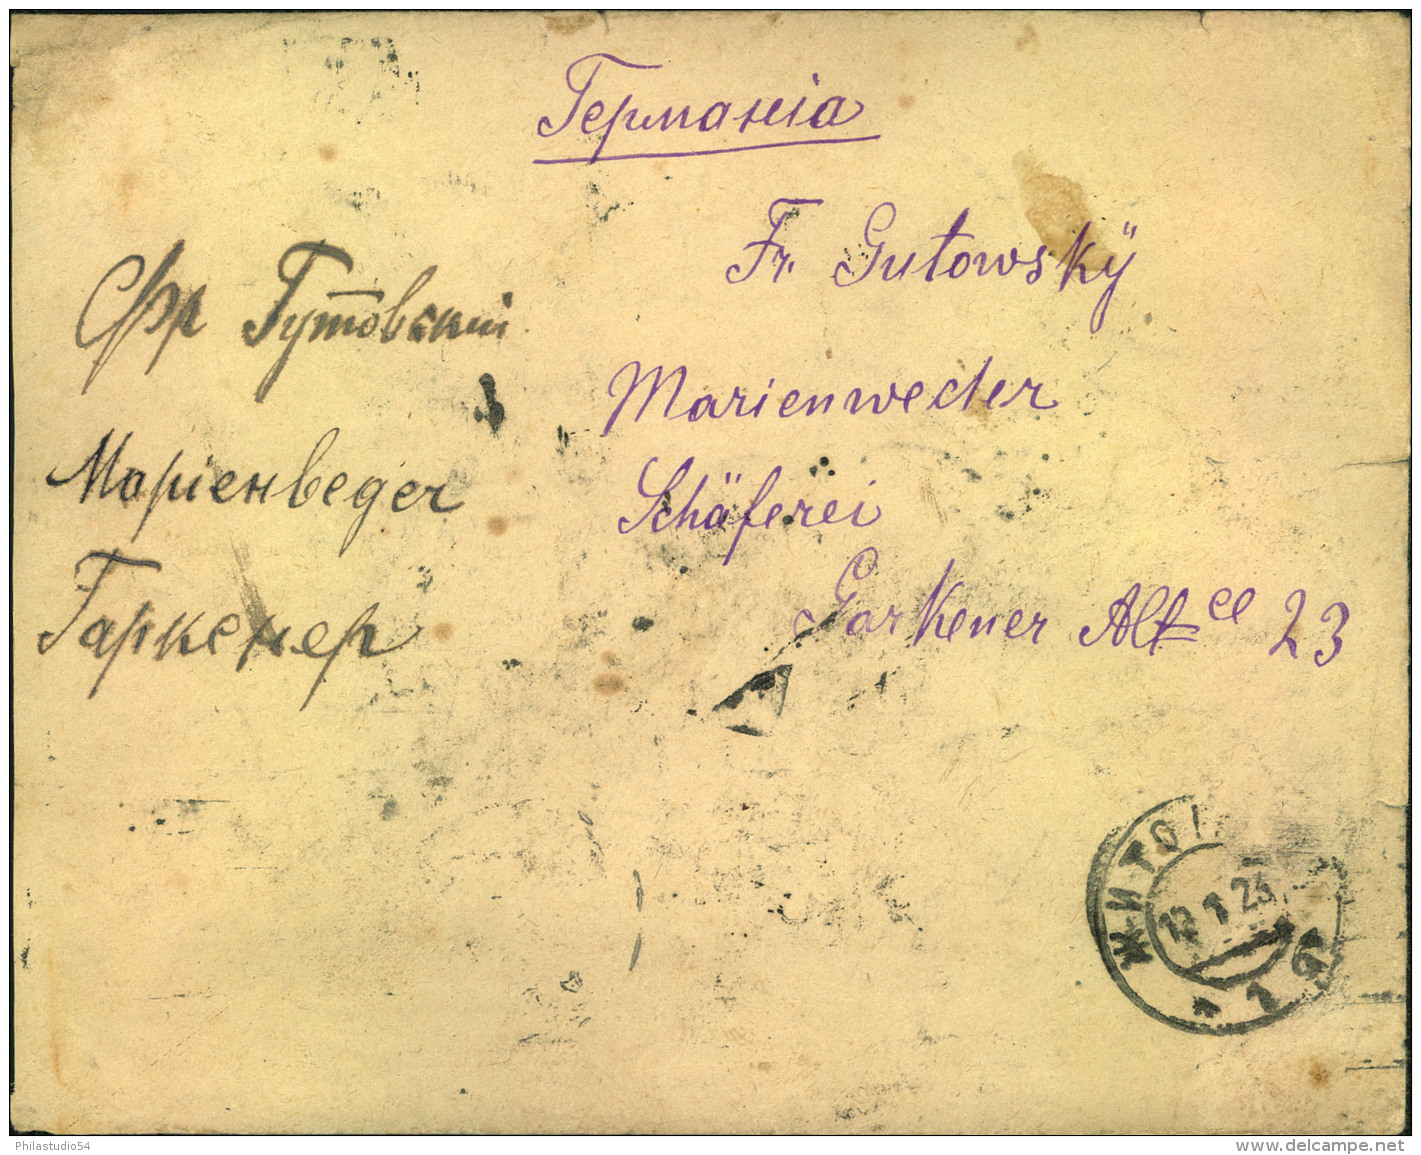 Германія
Fr. Gutowskÿ
Marienweder
Schäferei
Garkener Alt ee 23
Фр Гутовскіи
Маріенведег
Гаркенер
ЖИТО
1 23
Philastudio54
www.delcampe.net